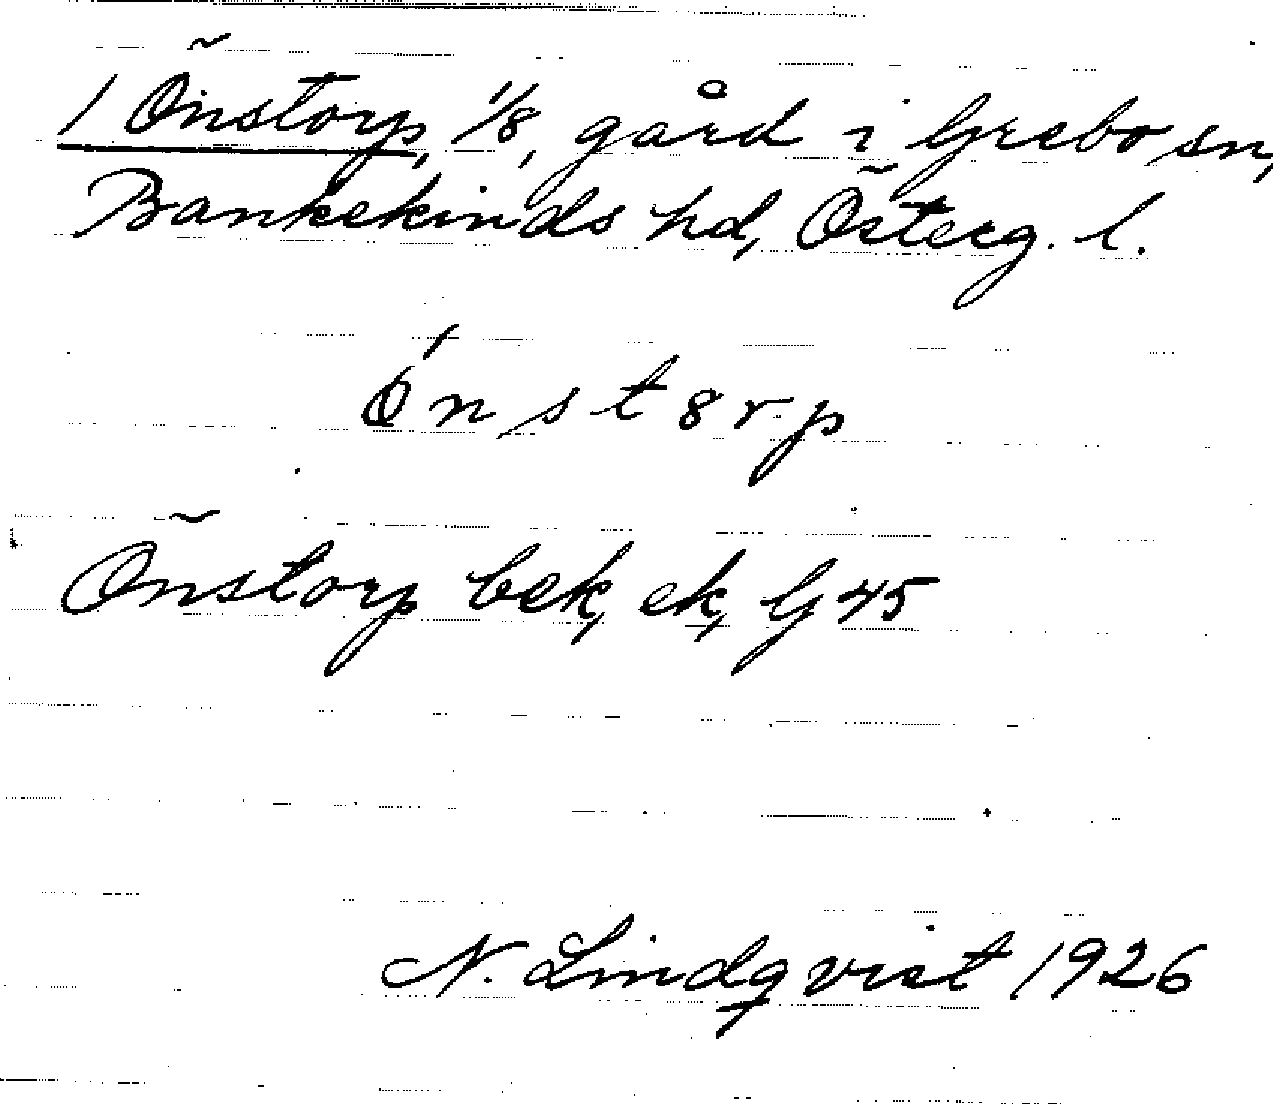 1 Önstorp, 1/8, gård i Grebo sn,
Bankekinds hd, Österg. l.
Ǿn st8rp
Önstorp bek, ek, G 45
N. Lindqvist 1926